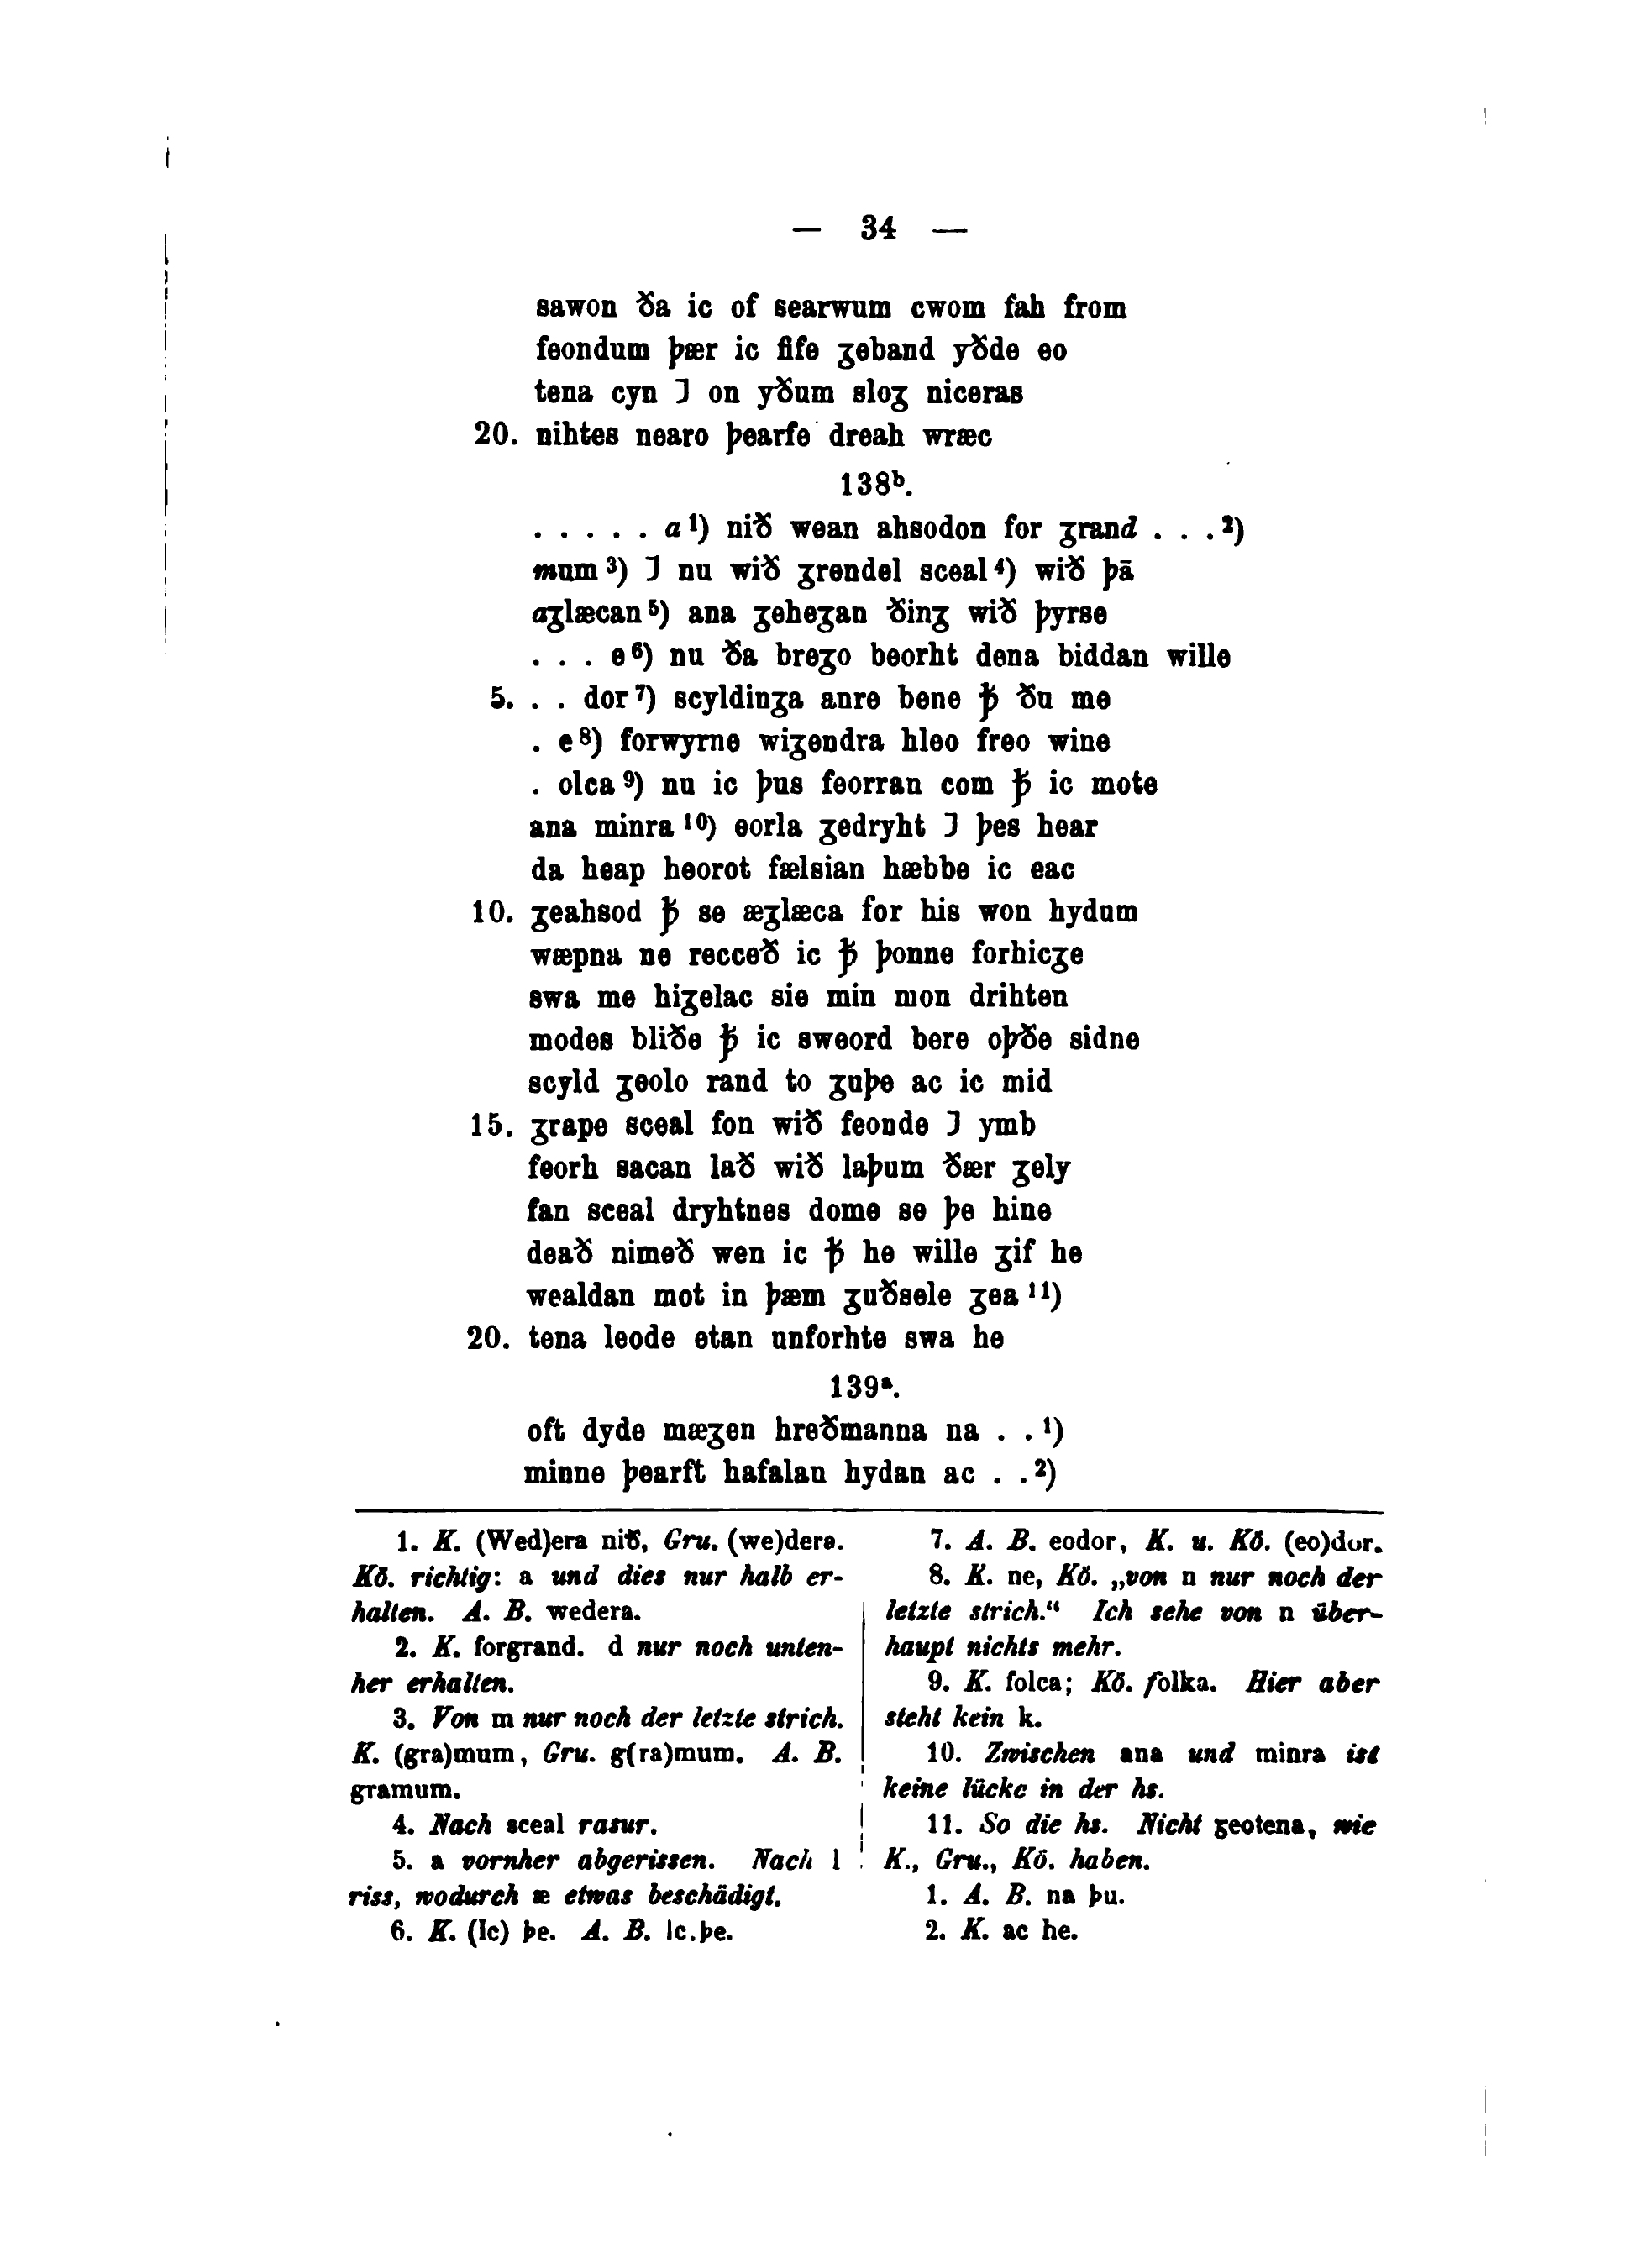 — 34 —
sawon ða ic of searwum cwom fah from
feondum þær ic fife ʒeband yðde eo
tena cyn ⁊ on yðum sloʒ niceras
20. nihtes nearo þearfe dreah wræc
138ᵇ.
. . . . . a¹) nið wean ahsodon for ʒrand . . .²)
mum³) ⁊ nu wið ʒrendel sceal⁴) wið þā
aʒlæcan⁵) ana ʒeheʒan ðinʒ wið þyrse
. . . e⁶) nu ða breʒo beorht dena biddan wille
5. . . dor⁷) scyldinʒa anre bene ꝥ ðu me
. e⁸) forwyrne wiʒendra hleo freo wine
. olca⁹) nu ic þus feorran com ꝥ ic mote
ana minra¹⁰) eorla ʒedryht ⁊ þes hear
da heap heorot fælsian hæbbe ic eac
10. ʒeahsod ꝥ se æʒlæca for his won hydum
wæpna ne recceð ic ꝥ þonne forhicʒe
swa me hiʒelac sie min mon drihten
modes bliðe ꝥ ic sweord bere oþðe sidne
scyld ʒeolo rand to ʒuþe ac ic mid
15. ʒrape sceal fon wið feonde ⁊ ymb
feorh sacan lað wið laþum ðær ʒely
fan sceal dryhtnes dome se þe hine
deað nimeð wen ic ꝥ he wille ʒif he
wealdan mot in þæm ʒuðsele ʒea¹¹)
20. tena leode etan unforhte swa he
139ᵃ.
oft dyde mæʒen hreðmanna na . . ¹)
minne þearft hafalan hydan ac . . ²)
1. K. (Wed)era nið, Gru. (we)dera.
Kö. richtig: a und dies nur halb er-
halten. A. B. wedera.
2. K. forgrand. d nur noch unten-
her erhalten.
3. Von m nur noch der letzte strich.
K. (gra)mum, Gru. g(ra)mum. A. B.
gramum.
4. Nach sceal rasur.
5. a vornher abgerissen. Nach l
riss, wodurch æ etwas beschädigt.
6. K. (Ic) þe. A. B. Ic.þe.
7. A. B. eodor, K. u. Kö. (eo)dor.
8. K. ne, Kö. „von n nur noch der
letzte strich.“ Ich sehe von n über-
haupt nichts mehr.
9. K. folca; Kö. folka. Hier aber
steht kein k.
10. Zwischen ana und minra ist
keine lücke in der hs.
11. So die hs. Nicht ʒeotena, wie
K., Gru., Kö. haben.
1. A. B. na þu.
2. K. ac he.